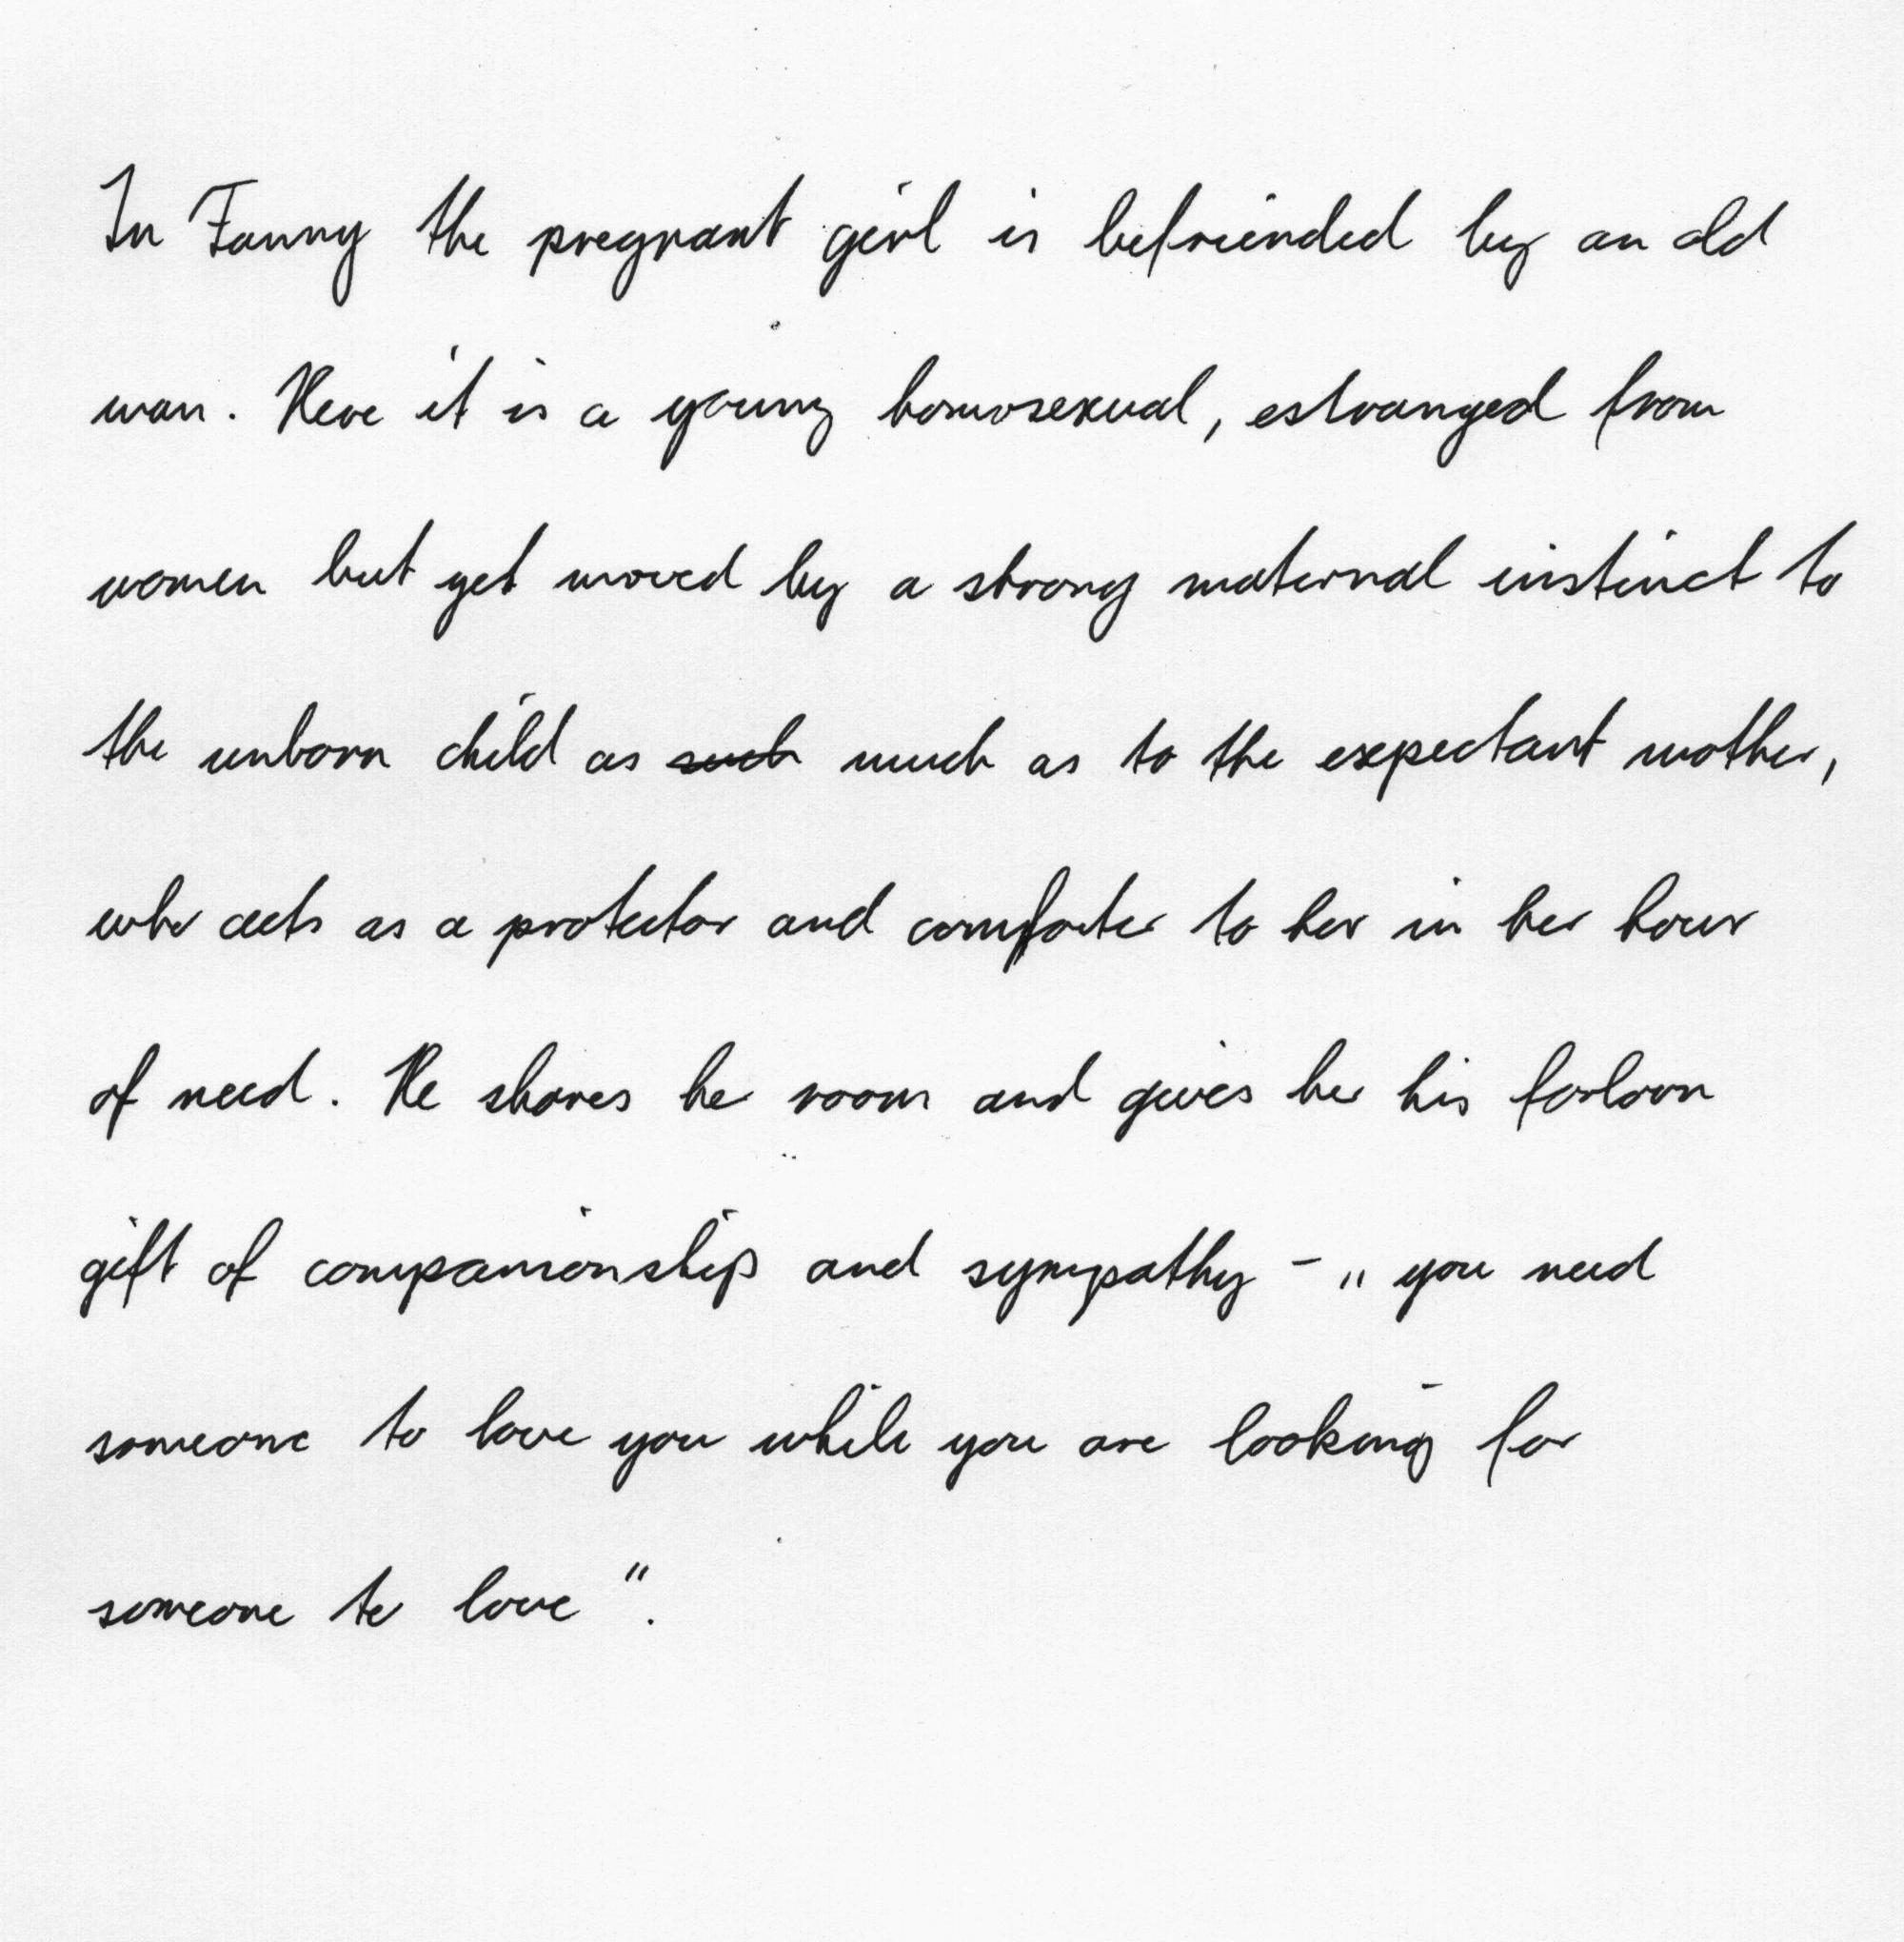 In Fanny the pregnant girl is befriended by an old
man. Here it is a young homosexual, estranged from
women but yet moved by a strong maternal instinct to
the unborn child as such much as to the expectant mother,
who acts as a protector and comforter to her in her hour
of need. He shares her room and gives her his forlorn
gift of companionship and sympathy - „you need
someone to love you while you are looking for
someone to love".